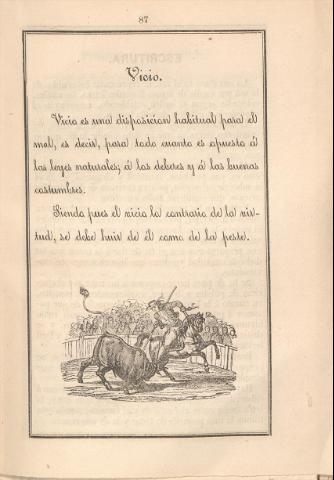 87
Vicio.
Vicio es una disposicion habitual para el
mal, es decir, para todo cuanto es opuesto á
las leyes naturales; á los deberes y á las buenas
costumbres.
Siendo pues el vicio lo contrario de la vir-
tud, se debe huir de él como de la peste.